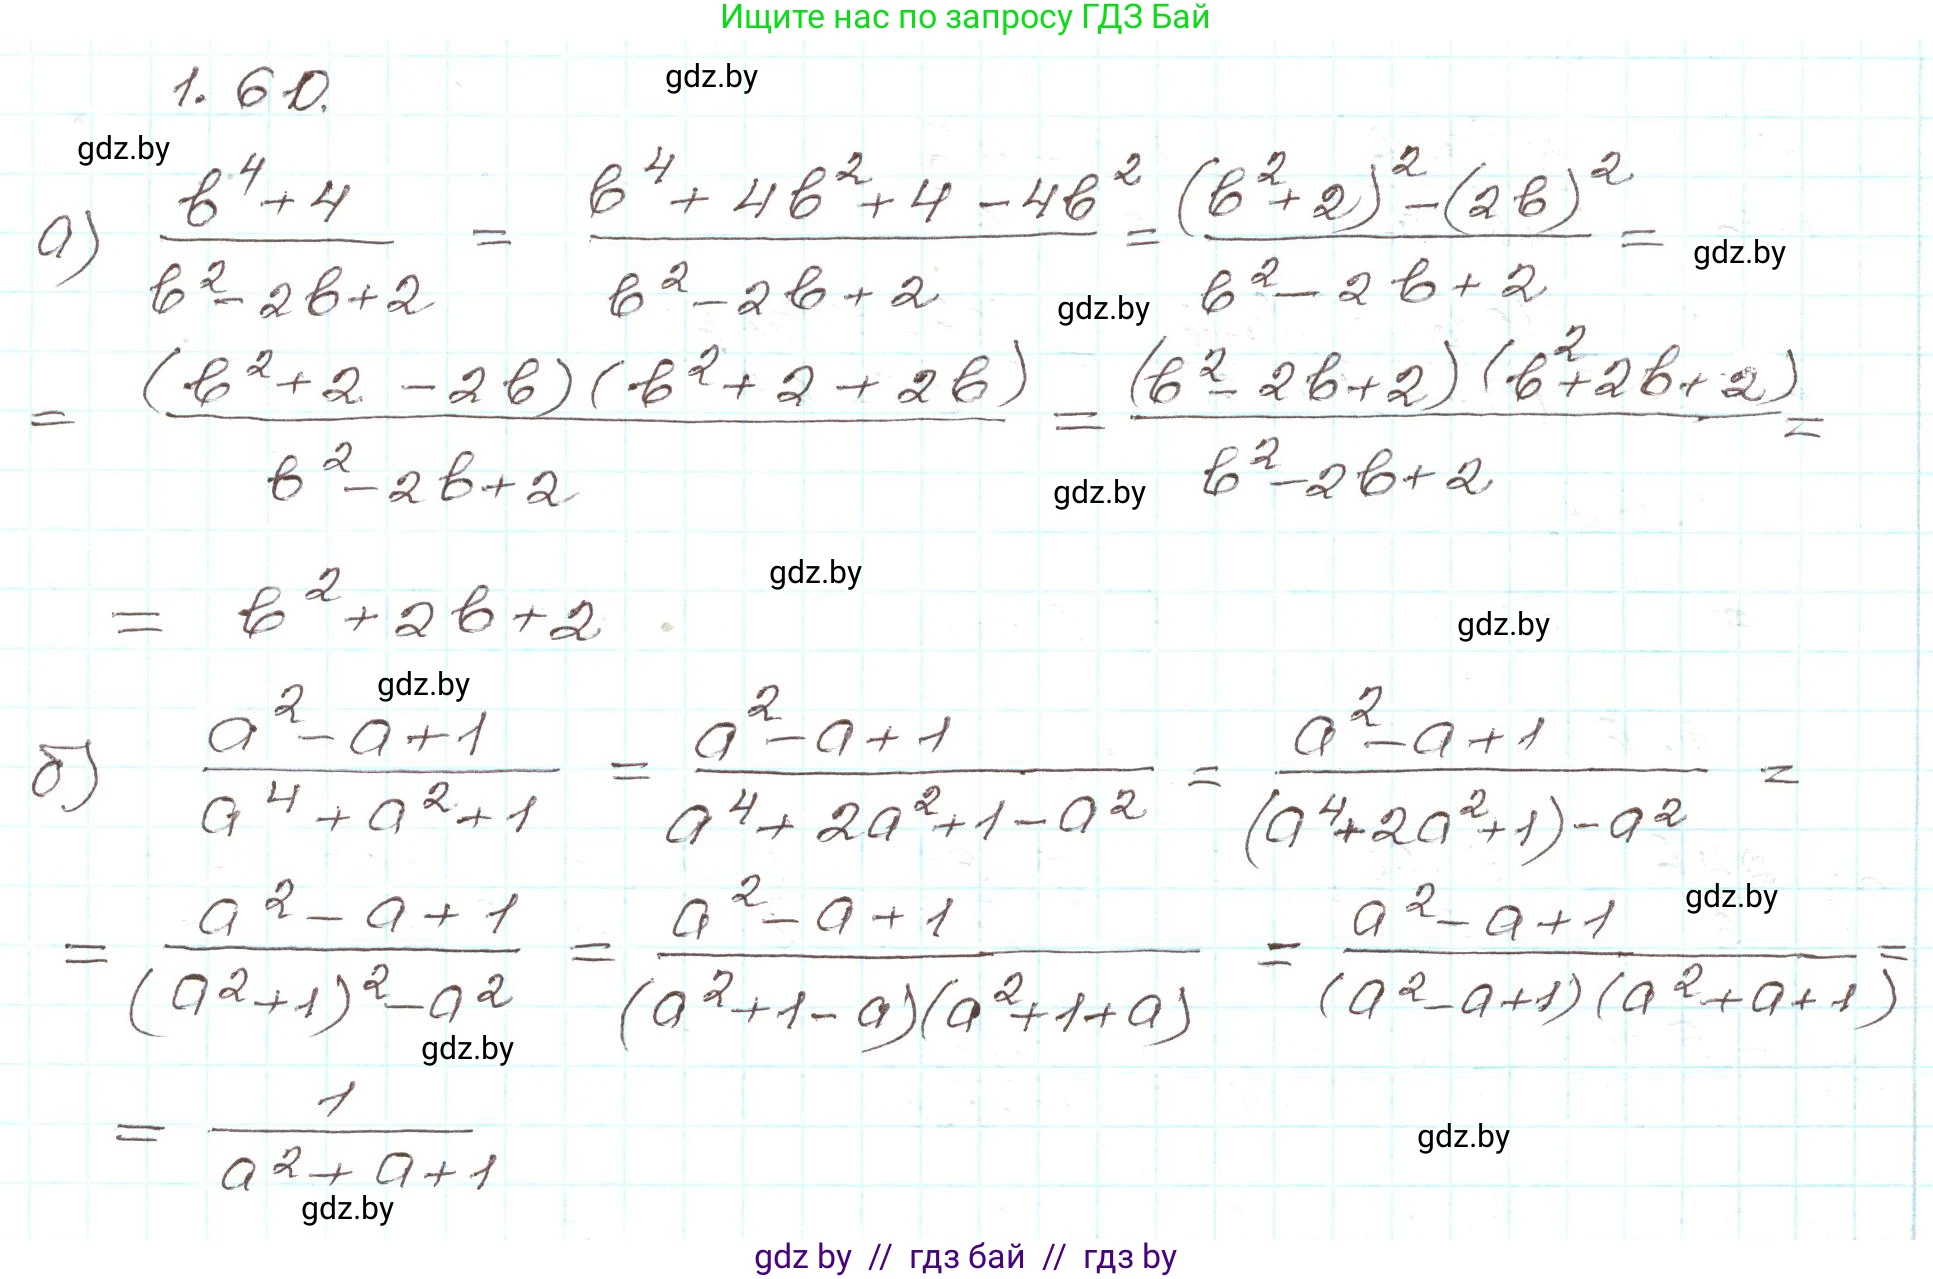 Ищите нас по запросу ГДЗ Бай
1.60.
gdz.by
gdz.by
а) (b⁴+4)/(b²-2b+2) = (b⁴+4b²+4-4b²)/(b²-2b+2) = ((b²+2)²-(2b)²)/(b²-2b+2) =
gdz.by
gdz.by
= ((b²+2-2b)(b²+2+2b))/(b²-2b+2) = ((b²-2b+2)(b²+2b+2))/(b²-2b+2) =
gdz.by
= b²+2b+2
gdz.by
gdz.by
gdz.by
б) (a²-a+1)/(a⁴+a²+1) = (a²-a+1)/(a⁴+2a²+1-a²) = (a²-a+1)/((a⁴+2a²+1)-a²) =
= (a²-a+1)/((a²+1)²-a²) = (a²-a+1)/((a²+1-a)(a²+1+a)) = (a²-a+1)/((a²-a+1)(a²+a+1)) =
gdz.by
gdz.by
= 1/(a²+a+1)
gdz.by
gdz.by
gdz by // гдз бай // гдз by